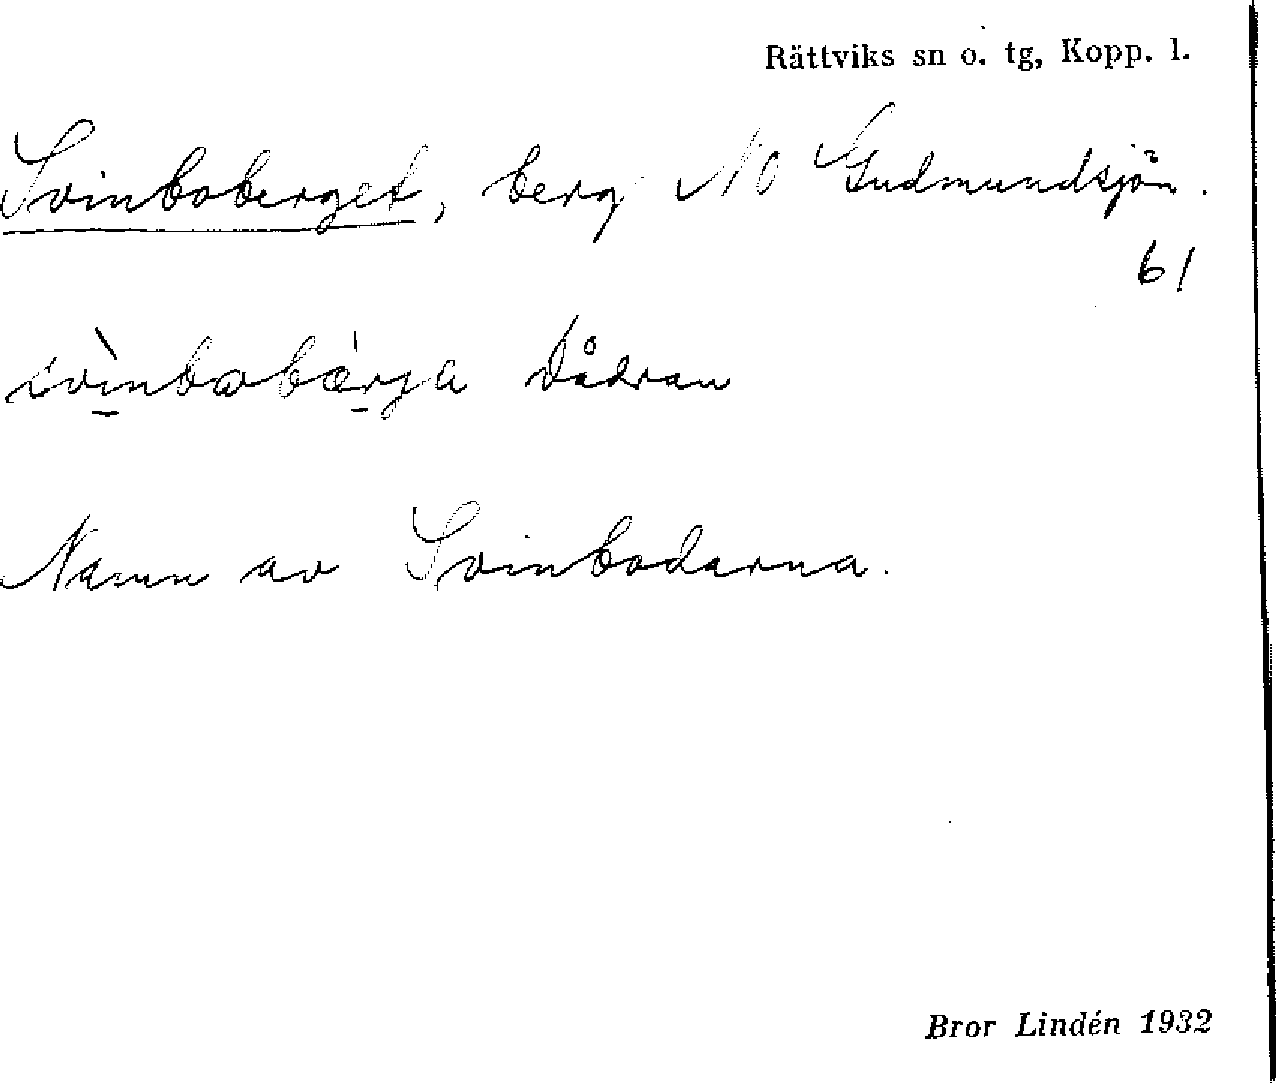 Rättviks sn o. tg, Kopp. l.
Svinboberget, berg NO Gudmundsjön.
61
Dådran
Namn av Svinbodarna.
Bror Lindén 1932